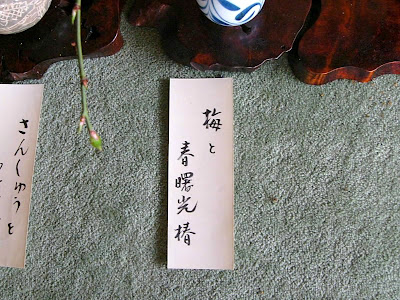 梅と
春曙光椿
さんしゅうと